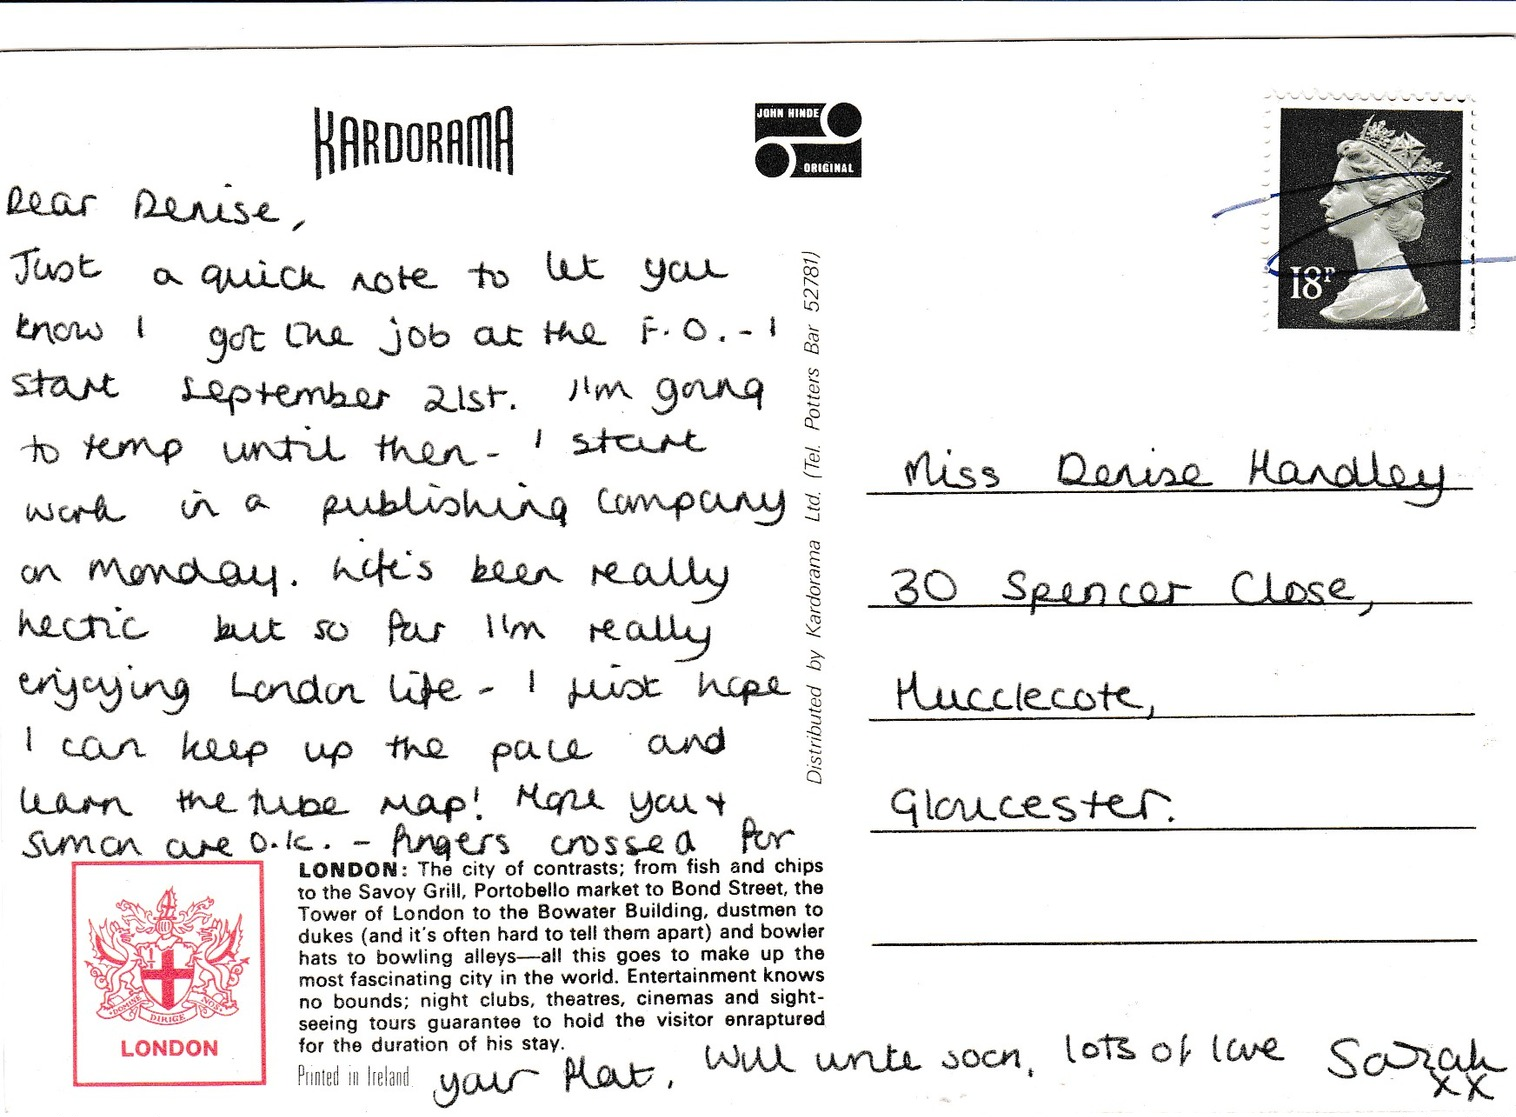 KARDORAMA
JOHN HINDE
ORIGINAL
18P
Dear Denise,
Just a quick note to let you
know I got the job at the F.O. - I
start September 21st. I'm going
to temp until then - I start
work in a publishing company
on Monday. Life's been really
hectic but so far I'm really
enjoying London life - I just hope
I can keep up the pace and
learn the tube map! Hope you +
Simon are O.K. - fingers crossed for
your flat. Will write soon, lots of love Sarah
xx
Distributed by Kardorama Ltd. (Tel. Potters Bar 52781)
Miss Denise Handley
30 Spencer Close,
Hucclecote,
Gloucester.
DOMINE DIRIGE NOS
LONDON
LONDON: The city of contrasts; from fish and chips
to the Savoy Grill, Portobello market to Bond Street, the
Tower of London to the Bowater Building, dustmen to
dukes (and it's often hard to tell them apart) and bowler
hats to bowling alleys—all this goes to make up the
most fascinating city in the world. Entertainment knows
no bounds; night clubs, theatres, cinemas and sight-
seeing tours guarantee to hold the visitor enraptured
for the duration of his stay.
Printed in Ireland